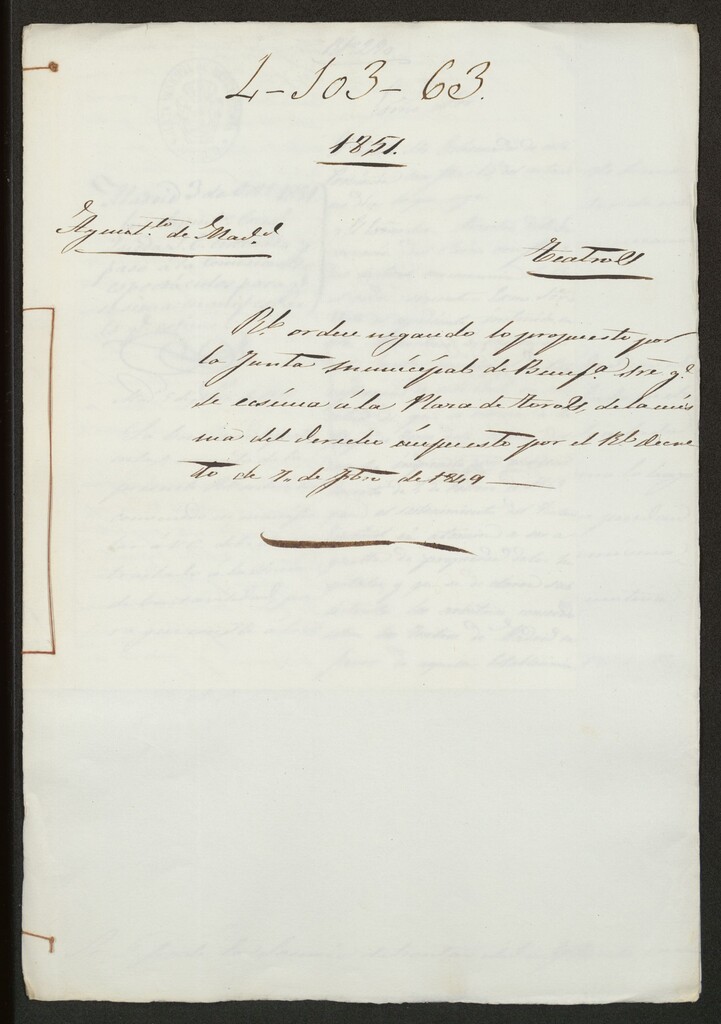 4-103-63.
1851.
Ayunt.to de Mad.d
Teatros
Rl. orden negando lo propuesto por
la Junta municipal de Benefa. sre. q.e
se exima á la Plaza de toros, de la mis
ma del derecho impuesto por el Rl. decre
to de 7. de fbro de 1849